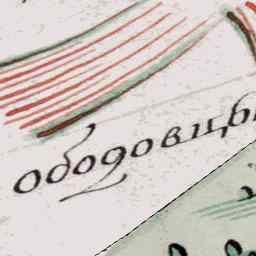 ободовцы